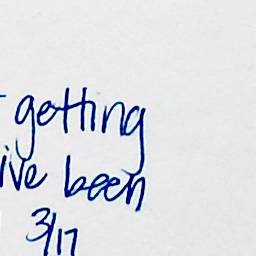 getting
ive been
3/17